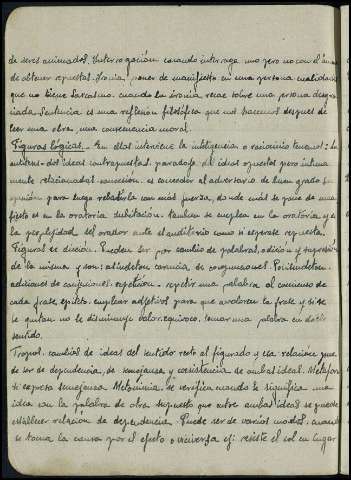 de seres animados. Interrogación cuando interroga uno pero no con el ánimo
de obtener repuesta. Ironia, poner de manifiesto en una persona cualidades
que no tiene. Sarcasmo. cuando la ironia recae sobre una persona desgra-
ciada. Sentencia es una reflesión filosófica que nos hacemos despues de
leer una obra, una consecuencia moral.
Figuras lógicas.- En ellas interviene la inteligencia o raciocinio tenemos: la
antitesis - dos ideas contrapuestas. paradoja dos ideas opuestas pero intima
mente relacionadas. concesión. es conceder al adversario de buen grado su
opinión para luego rebatirla con más fuerza, donde más se pone de mani
fiesto es en la oratoria. dubitación. tambien se emplea en la oratoria, y es
la perplejidad del orador ante el auditorio como si esperase repuesta.
Figuras de dicción. Pueden ser por cambio de palabras, adición y supresión
de la misma y son: asindeton carencia de conjunciones. Polisindeton.
adiciones de conjunciones. repetición. - repetir una palabra al comienzo de
cada frase, epiteto. emplear adjetivos para que avaloren la frase y si se
le quitan no le disminuye valor. equivoco. tomar una palabra en doble
sentido.
Tropos. cambios de ideas del sentido recto al figurado y esa relación pue
de ser de dependencia, de semejanza y coexistencia de ambas ideas. Metáfora
si expresa semejanza. Metonimia, se verifica cuando se significa una
idea con la palabra de otra supuesto que entre ambas ideas se puede
establecer relación de dependencia. Puede ser de varios modos. cuando
se toma la causa por el efecto o viceversa ej: resiste el sol en lugar